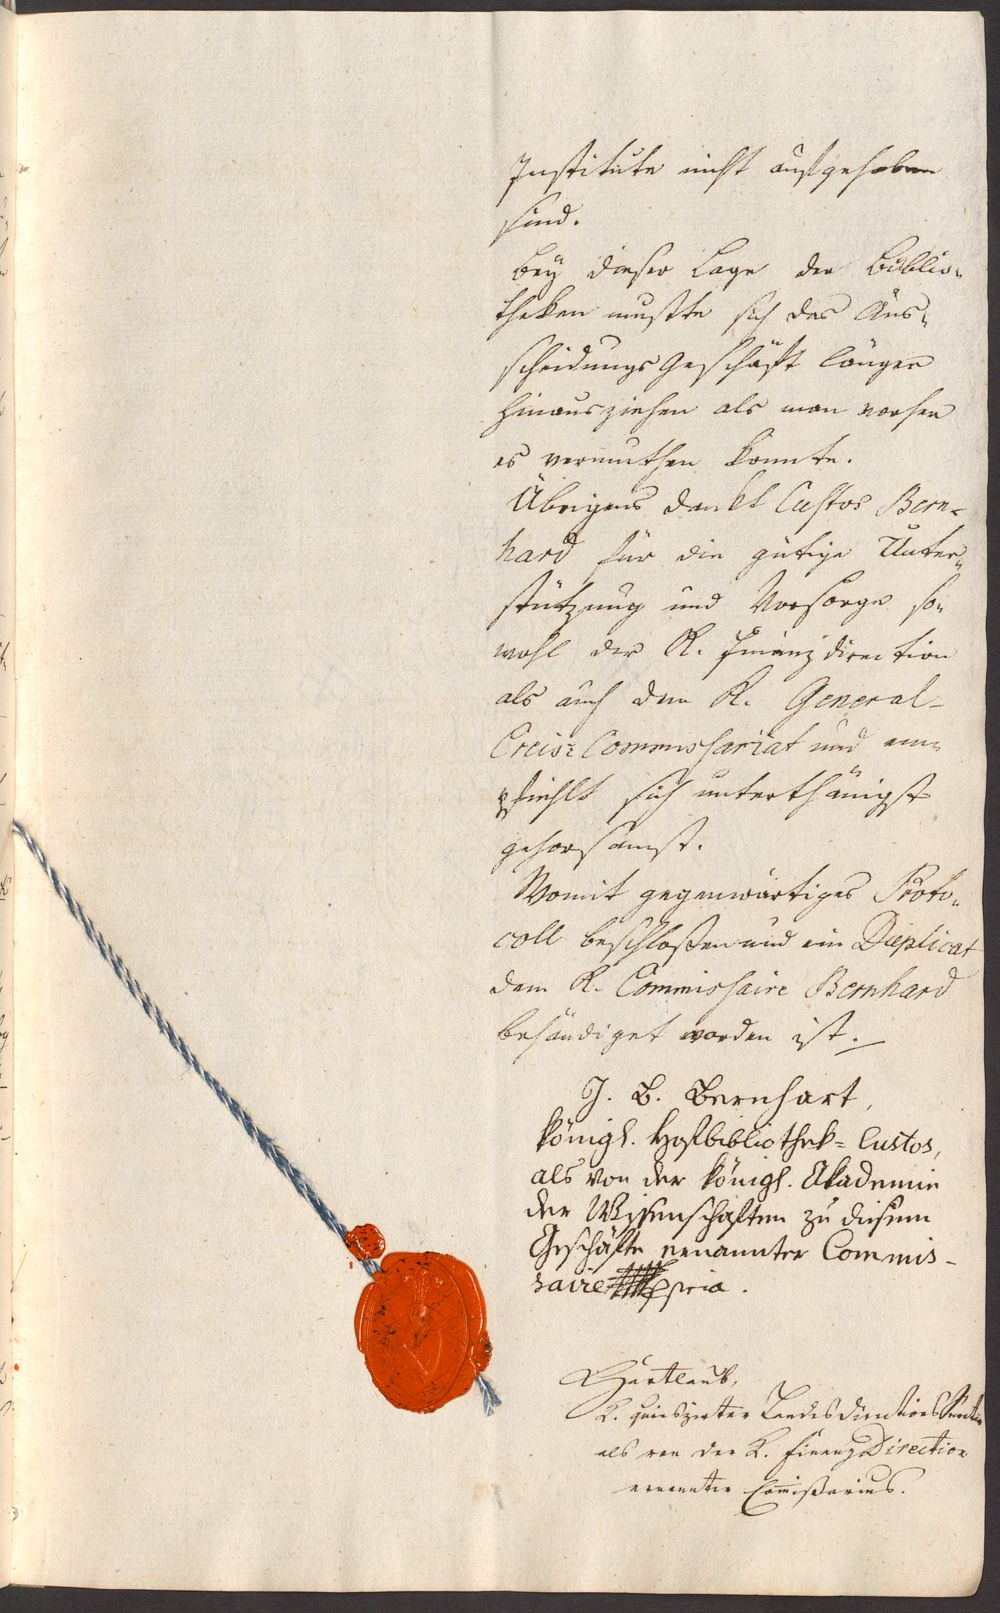 Institute nicht aufgehoben
sind.
Bey dieser Lage der Biblio-
theken mußte sich das Aus-
scheidungs Geschäft länger
hinausziehen als man vorher
es vermuthen konnte.
Übrigens dankt Custos Bern-
hard für die gütige Unter-
stützung und Vorsorge so-
wohl der K. Finanzdirection
als auch dem K. General-
Creis-Commissariat und em-
pfiehlt sich unterthänigst
gehorsamst.
Womit gegenwärtiges Proto-
coll beschloßen und ein Duplicat
dem K. Commissaire Bernhard
behändiget worden ist.
J. B. Bernhart,
königl. Hofbibliothek-Custos,
als von der königl. Akademie
der Wissenschaften zu diesem
Geschäfte ernannter Commis-
saire
Hartlaub,
K. quieszirter Landesdirections
als von der K. Finanz Direction
ernannter Comißarius.